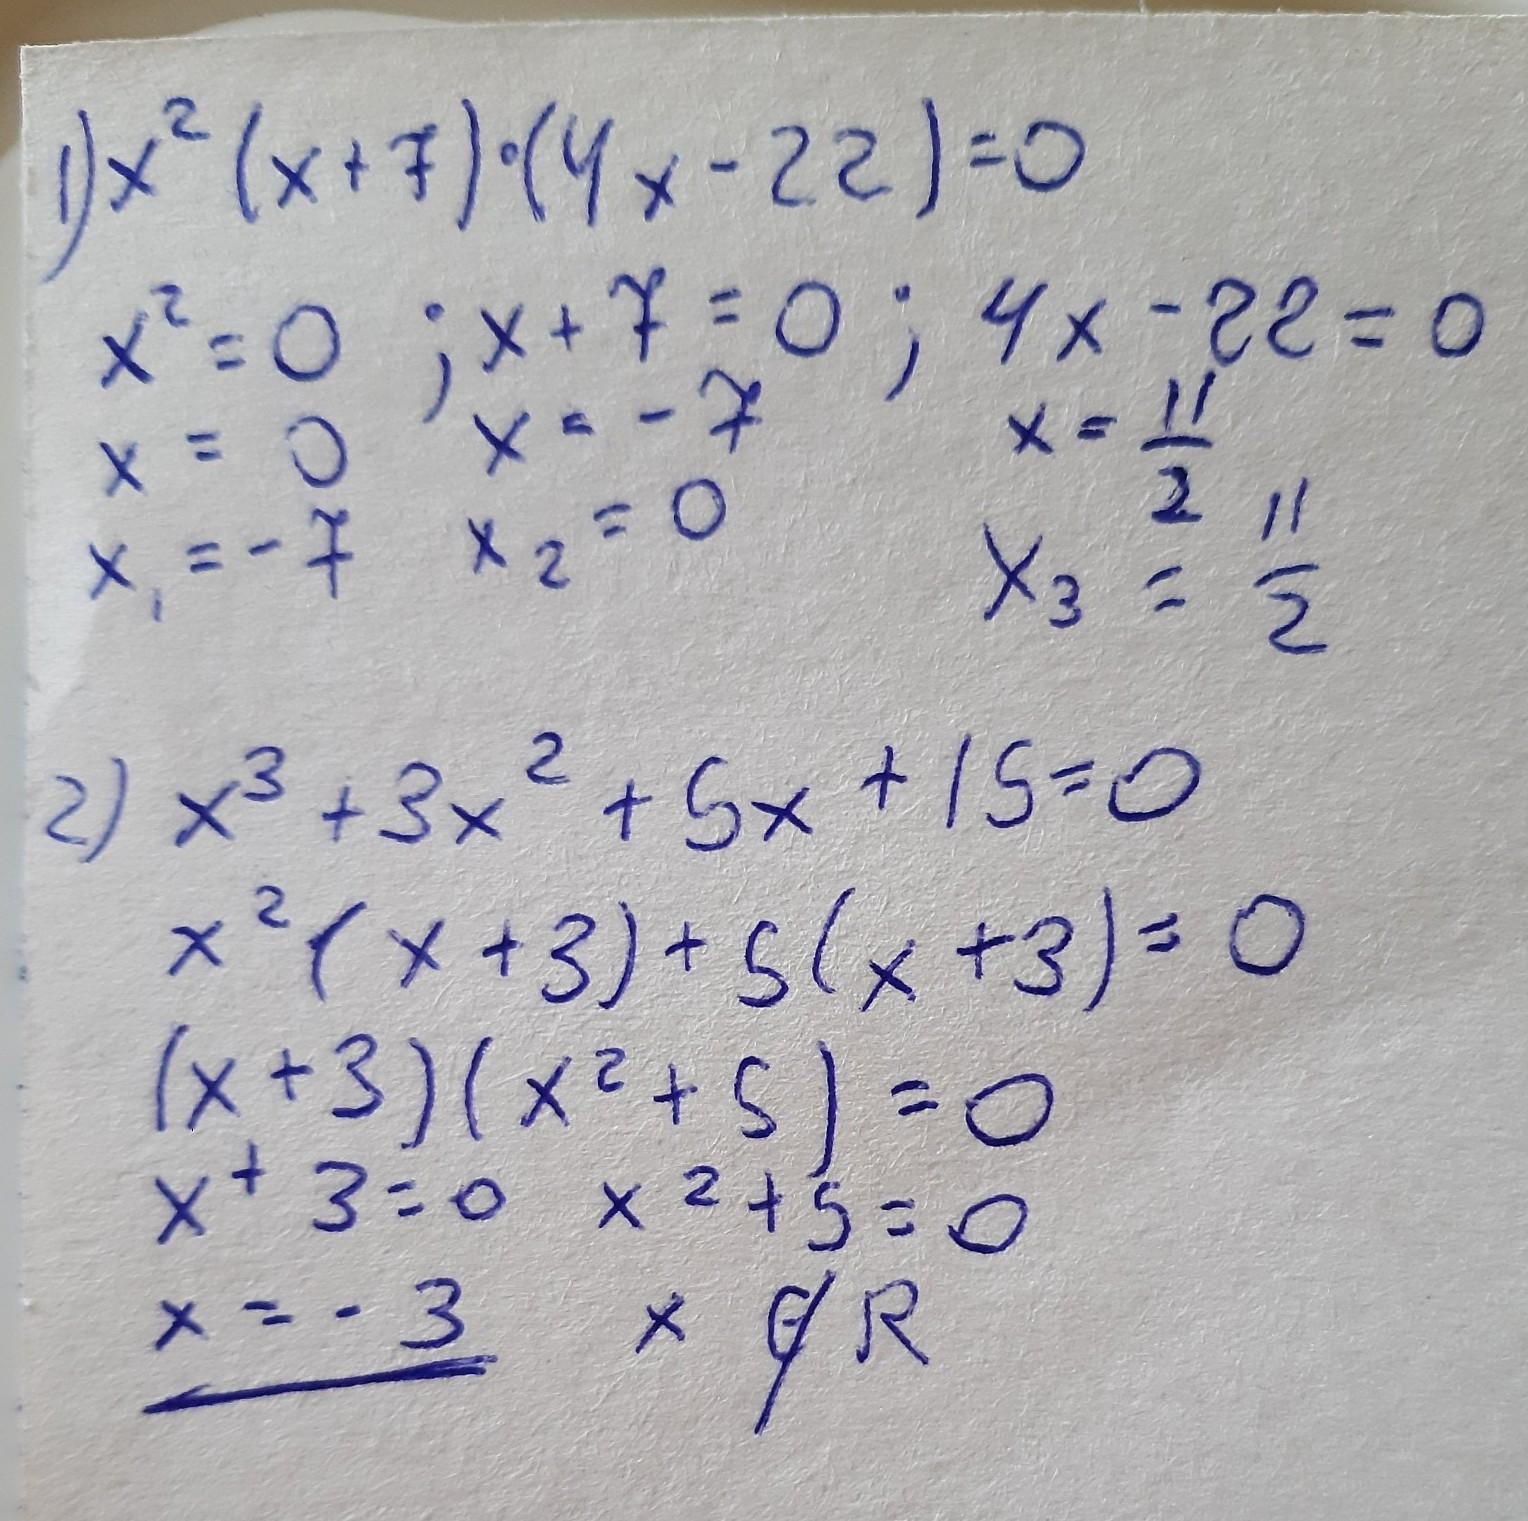 1) x² (x+7)·(4x-22)=0
x²=0 ; x+7=0 ; 4x-22=0
x = 0 x = -7 x = 11/2
x₁ = -7 x₂ = 0 x₃ = 11/2
2) x³+3x²+5x+15=0
x²(x+3)+5(x+3)=0
(x+3)(x²+5)=0
x+3=0 x²+5=0
x=-3 x ∉ R